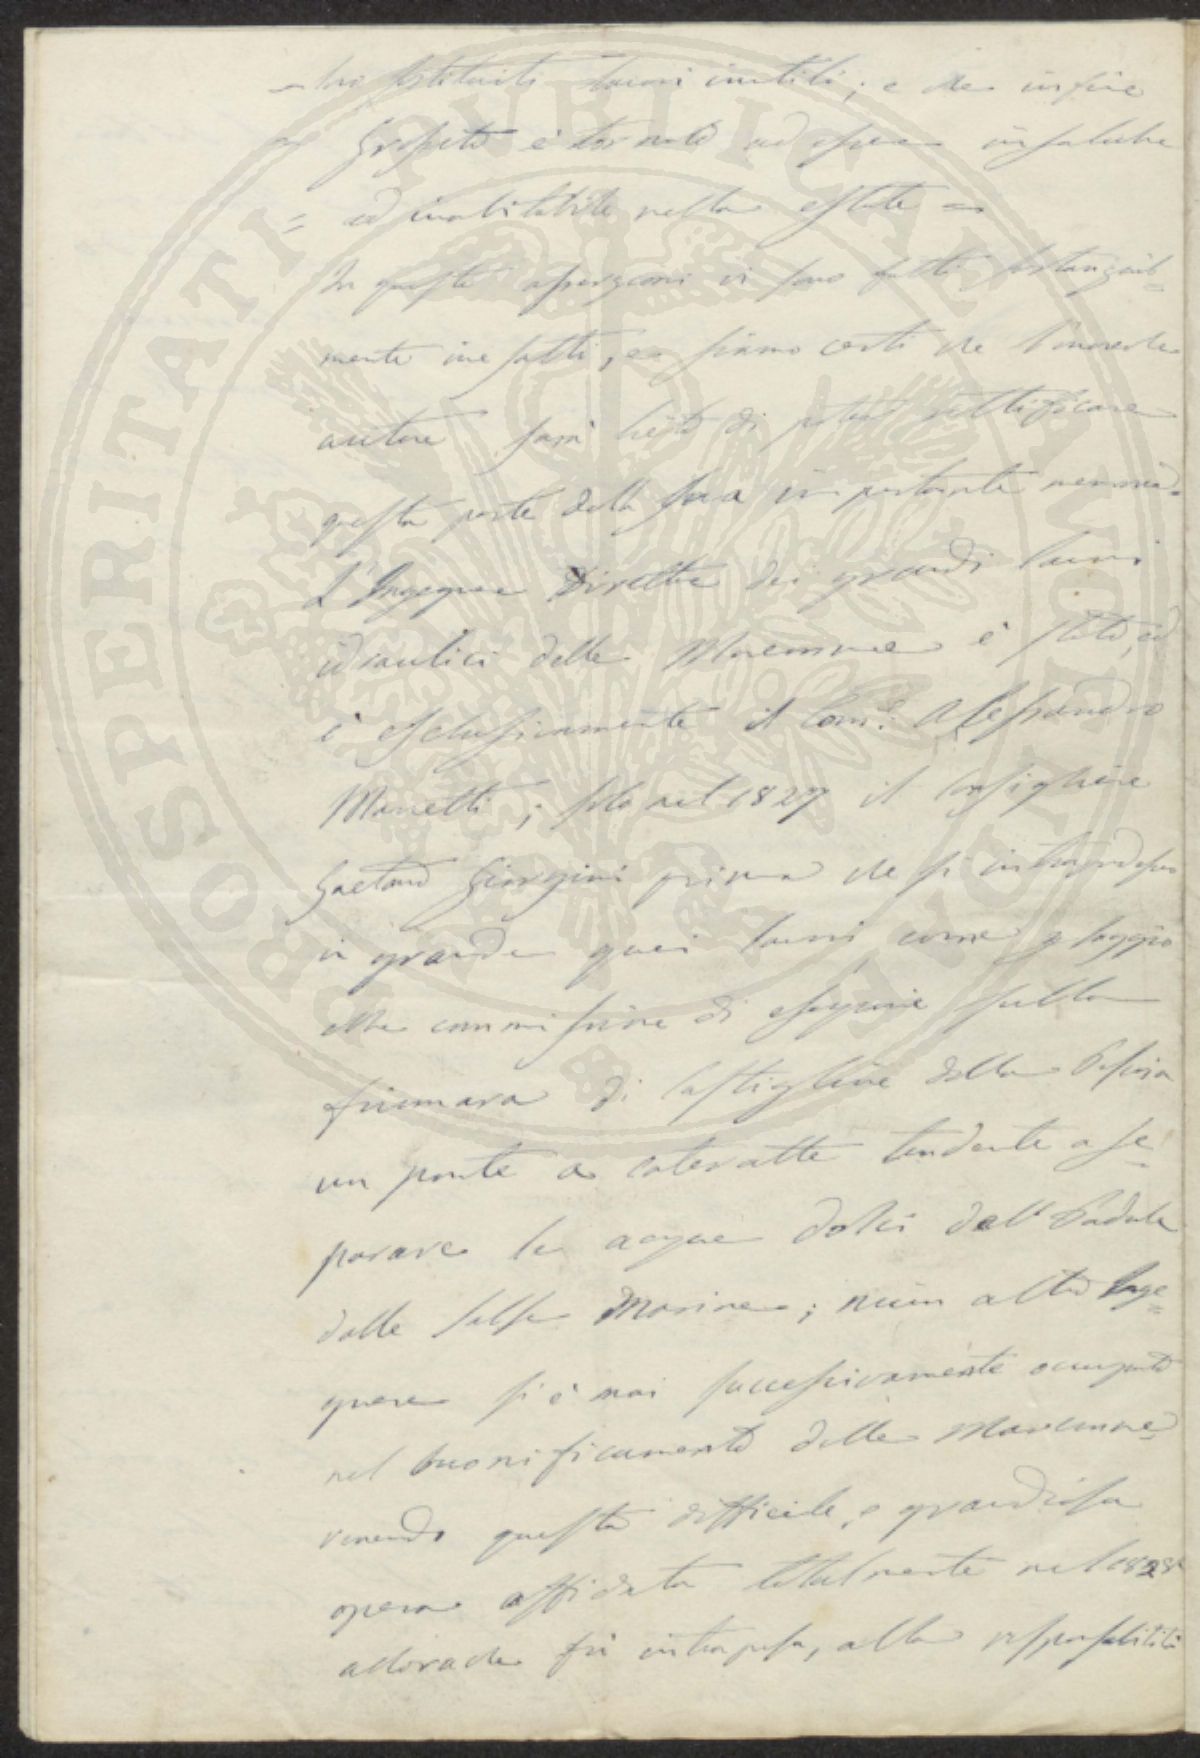 = tuo sostituiti lavori inutili; e che infine
= Grosseto è tornato ad essere insalubre
= ed inabitabile nella estate =
In queste asserzioni vi sono fatti sostanzial=
mente inesatti, e siamo certi che l'onorevole
autore sarà lieto di poter rettificare
questa parte della sua importante memoria=
L'Ingegnere Direttore dei grandi lavori
idraulici delle Maremme è stato, ed
è esclusivamente il Com.e Alessandro
Manetti; solo nel 1827 il Consigliere
Gaetano Giorgini prima che si intraprendesser
in grande quei lavori come p saggio
ebbe commissione di eseguire sulla
fiumara di Castiglione della Pescaia
un ponte a cateratte tendente a se=
parare le acque dolci dell' Padule
dalle salse Marine; niun altro Inge=
gnere si è mai successivamente occupato
nel buonificamento delle Maremme
venendo questa difficile, e grandiosa
opera affidata totalmente nel 1828
allorachè fù intrapresa, alla responsabilità
PROSPERITATI PVBLICAE AVGENDAE